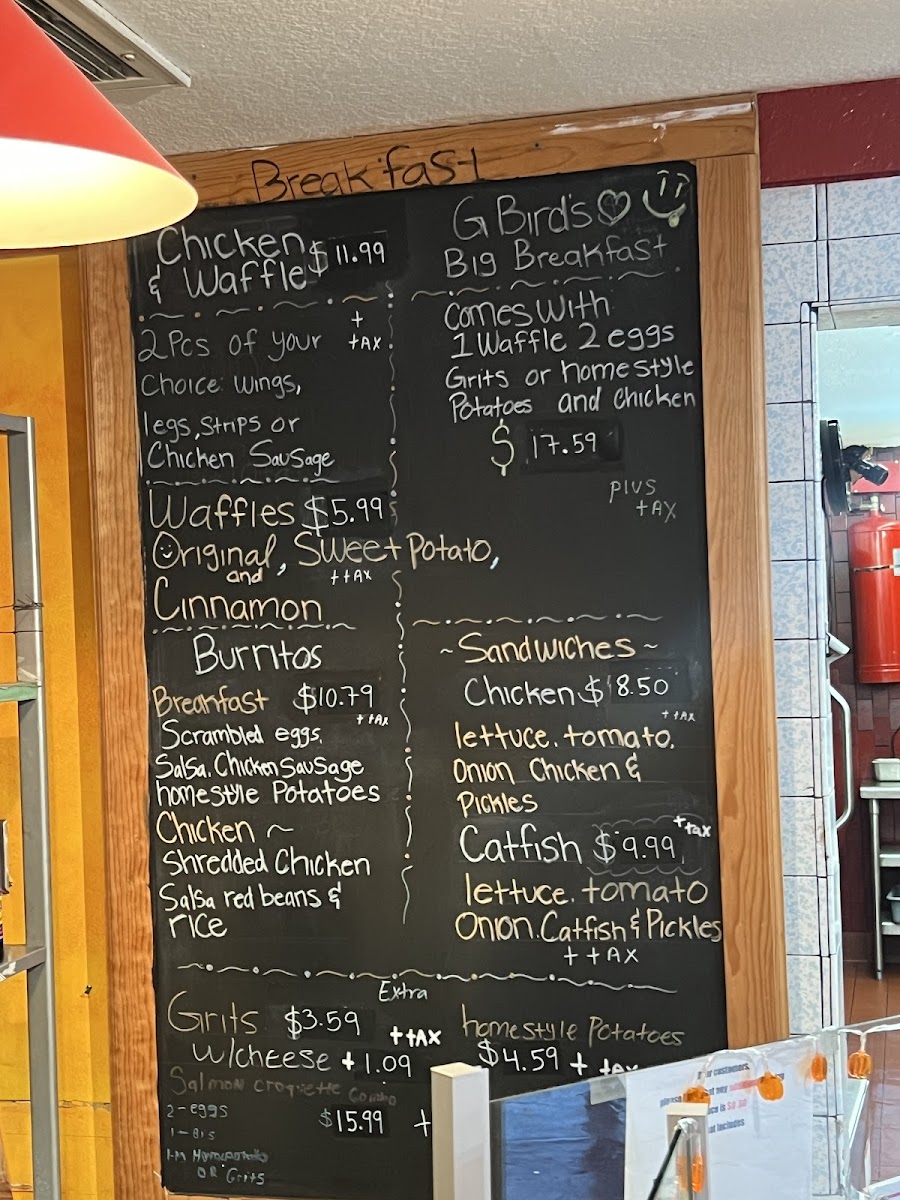 Breakfast
Chicken
& Waffle $11.99
+
+AX
2 Pcs of your
Choice: Wings,
legs, strips or
Chicken Sausage
Waffles $5.99
Original, Sweet Potato,
and
++AX
Cinnamon
Burritos
Breakfast $10.79
++AX
Scrambled eggs.
Salsa. Chicken Sausage
homestyle Potatoes
Chicken ~
Shredded Chicken
Salsa red beans &
rice
G Bird's
Big Breakfast
comes with
1 Waffle 2 eggs
Grits or homestyle
Potatoes and Chicken
$ 17.59
plus
+AX
~ Sandwiches ~
Chicken $ 8.50
++AX
lettuce. tomato.
Onion Chicken &
Pickles
Catfish $9.99
+tax
lettuce. tomato
Onion. Catfish & Pickles
++AX
Extra
Grits $3.59 ++AX
w/cheese +1.09
homestyle Potatoes
$4.59 + tax
Salmon croquette Combo
2-eggs
$15.99 +
OR Grits
customers,